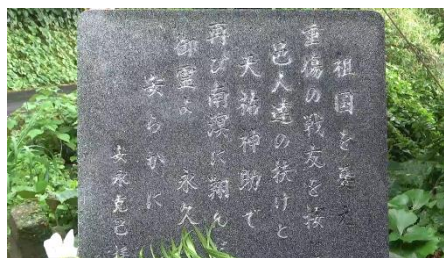 祖国を
重傷の戦友を
邑人達の扶けと
天祐神助で
再び南溟に翔ん
御霊よ 永久
安らかに
安永克己